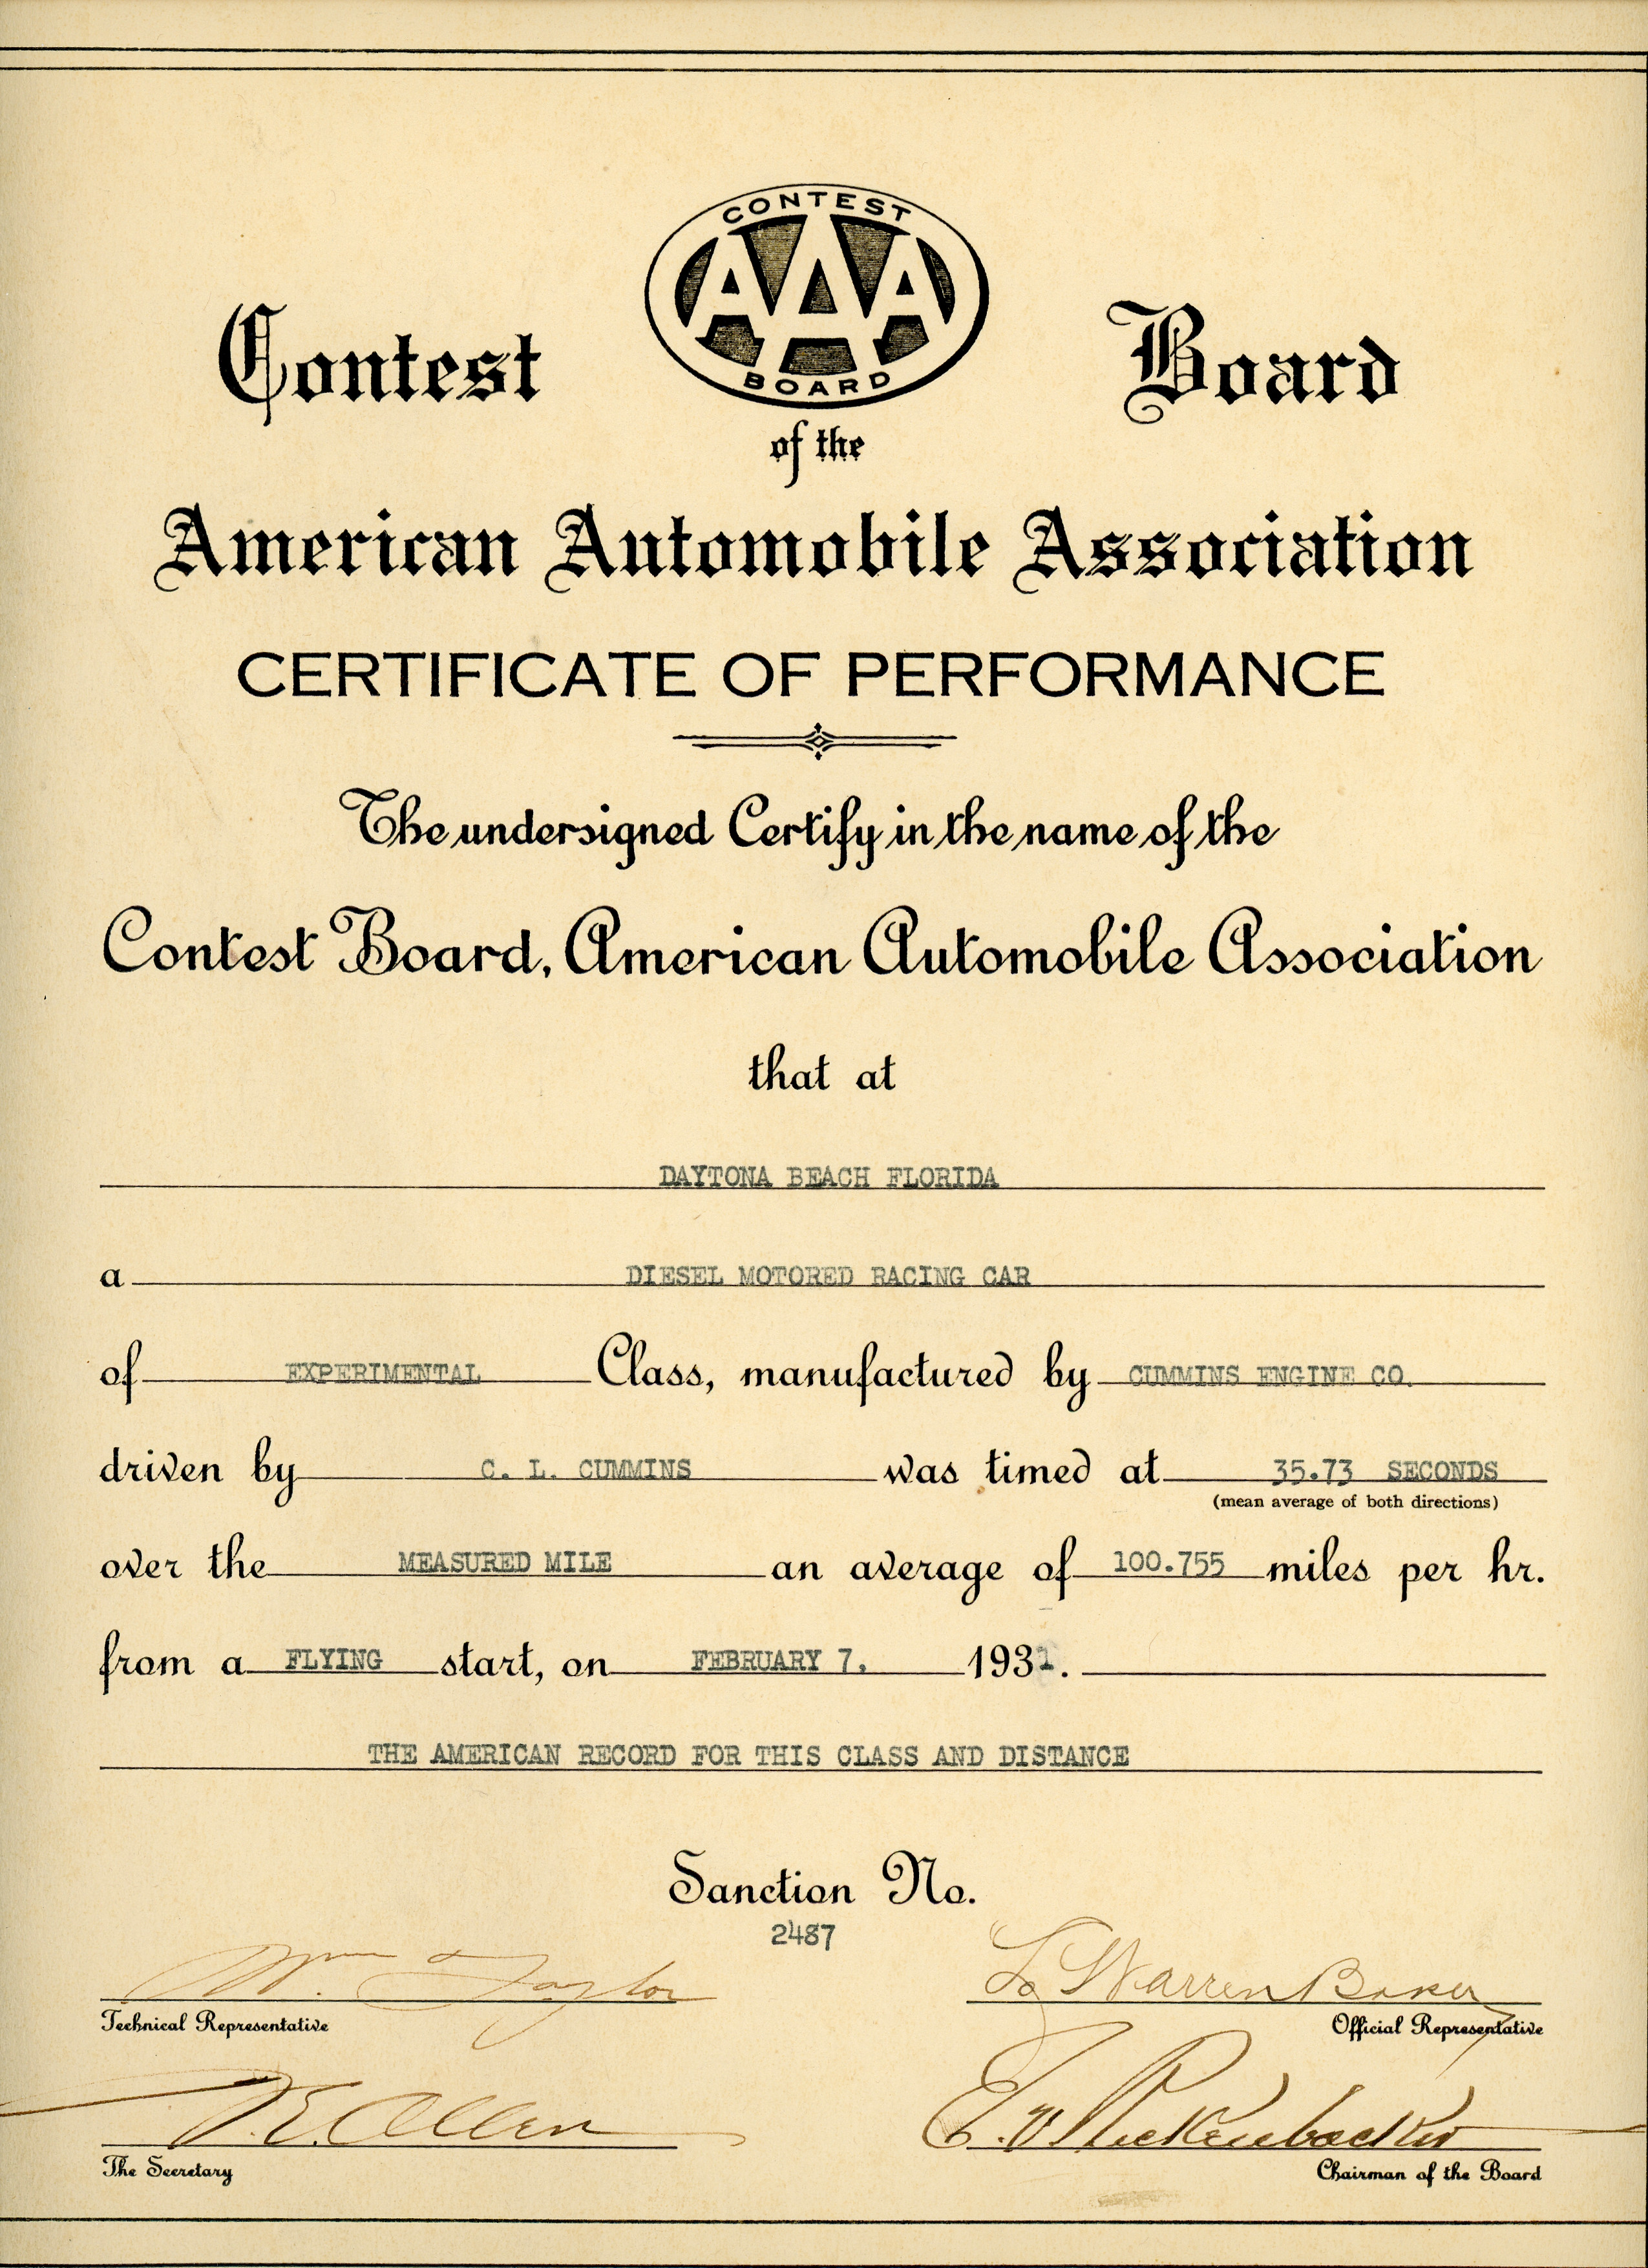 CONTEST
AAA
BOARD
Contest Board
of the
American Automobile Association
CERTIFICATE OF PERFORMANCE
The undersigned Certify in the name of the
Contest Board, American Automobile Association
that at
DAYTONA BEACH FLORIDA
a DIESEL MOTORED RACING CAR
of EXPERIMENTAL Class, manufactured by CUMMINS ENGINE CO.
driven by C. L. CUMMINS was timed at 35.73 SECONDS
(mean average of both directions)
over the MEASURED MILE an average of 100.755 miles per hr.
from a FLYING start, on FEBRUARY 7, 1931.
THE AMERICAN RECORD FOR THIS CLASS AND DISTANCE
Sanction No.
2487
Wm. Taylor
Technical Representative
Warren Baker
Official Representative
Allen
The Secretary
E. V. Rickenbacker
Chairman of the Board